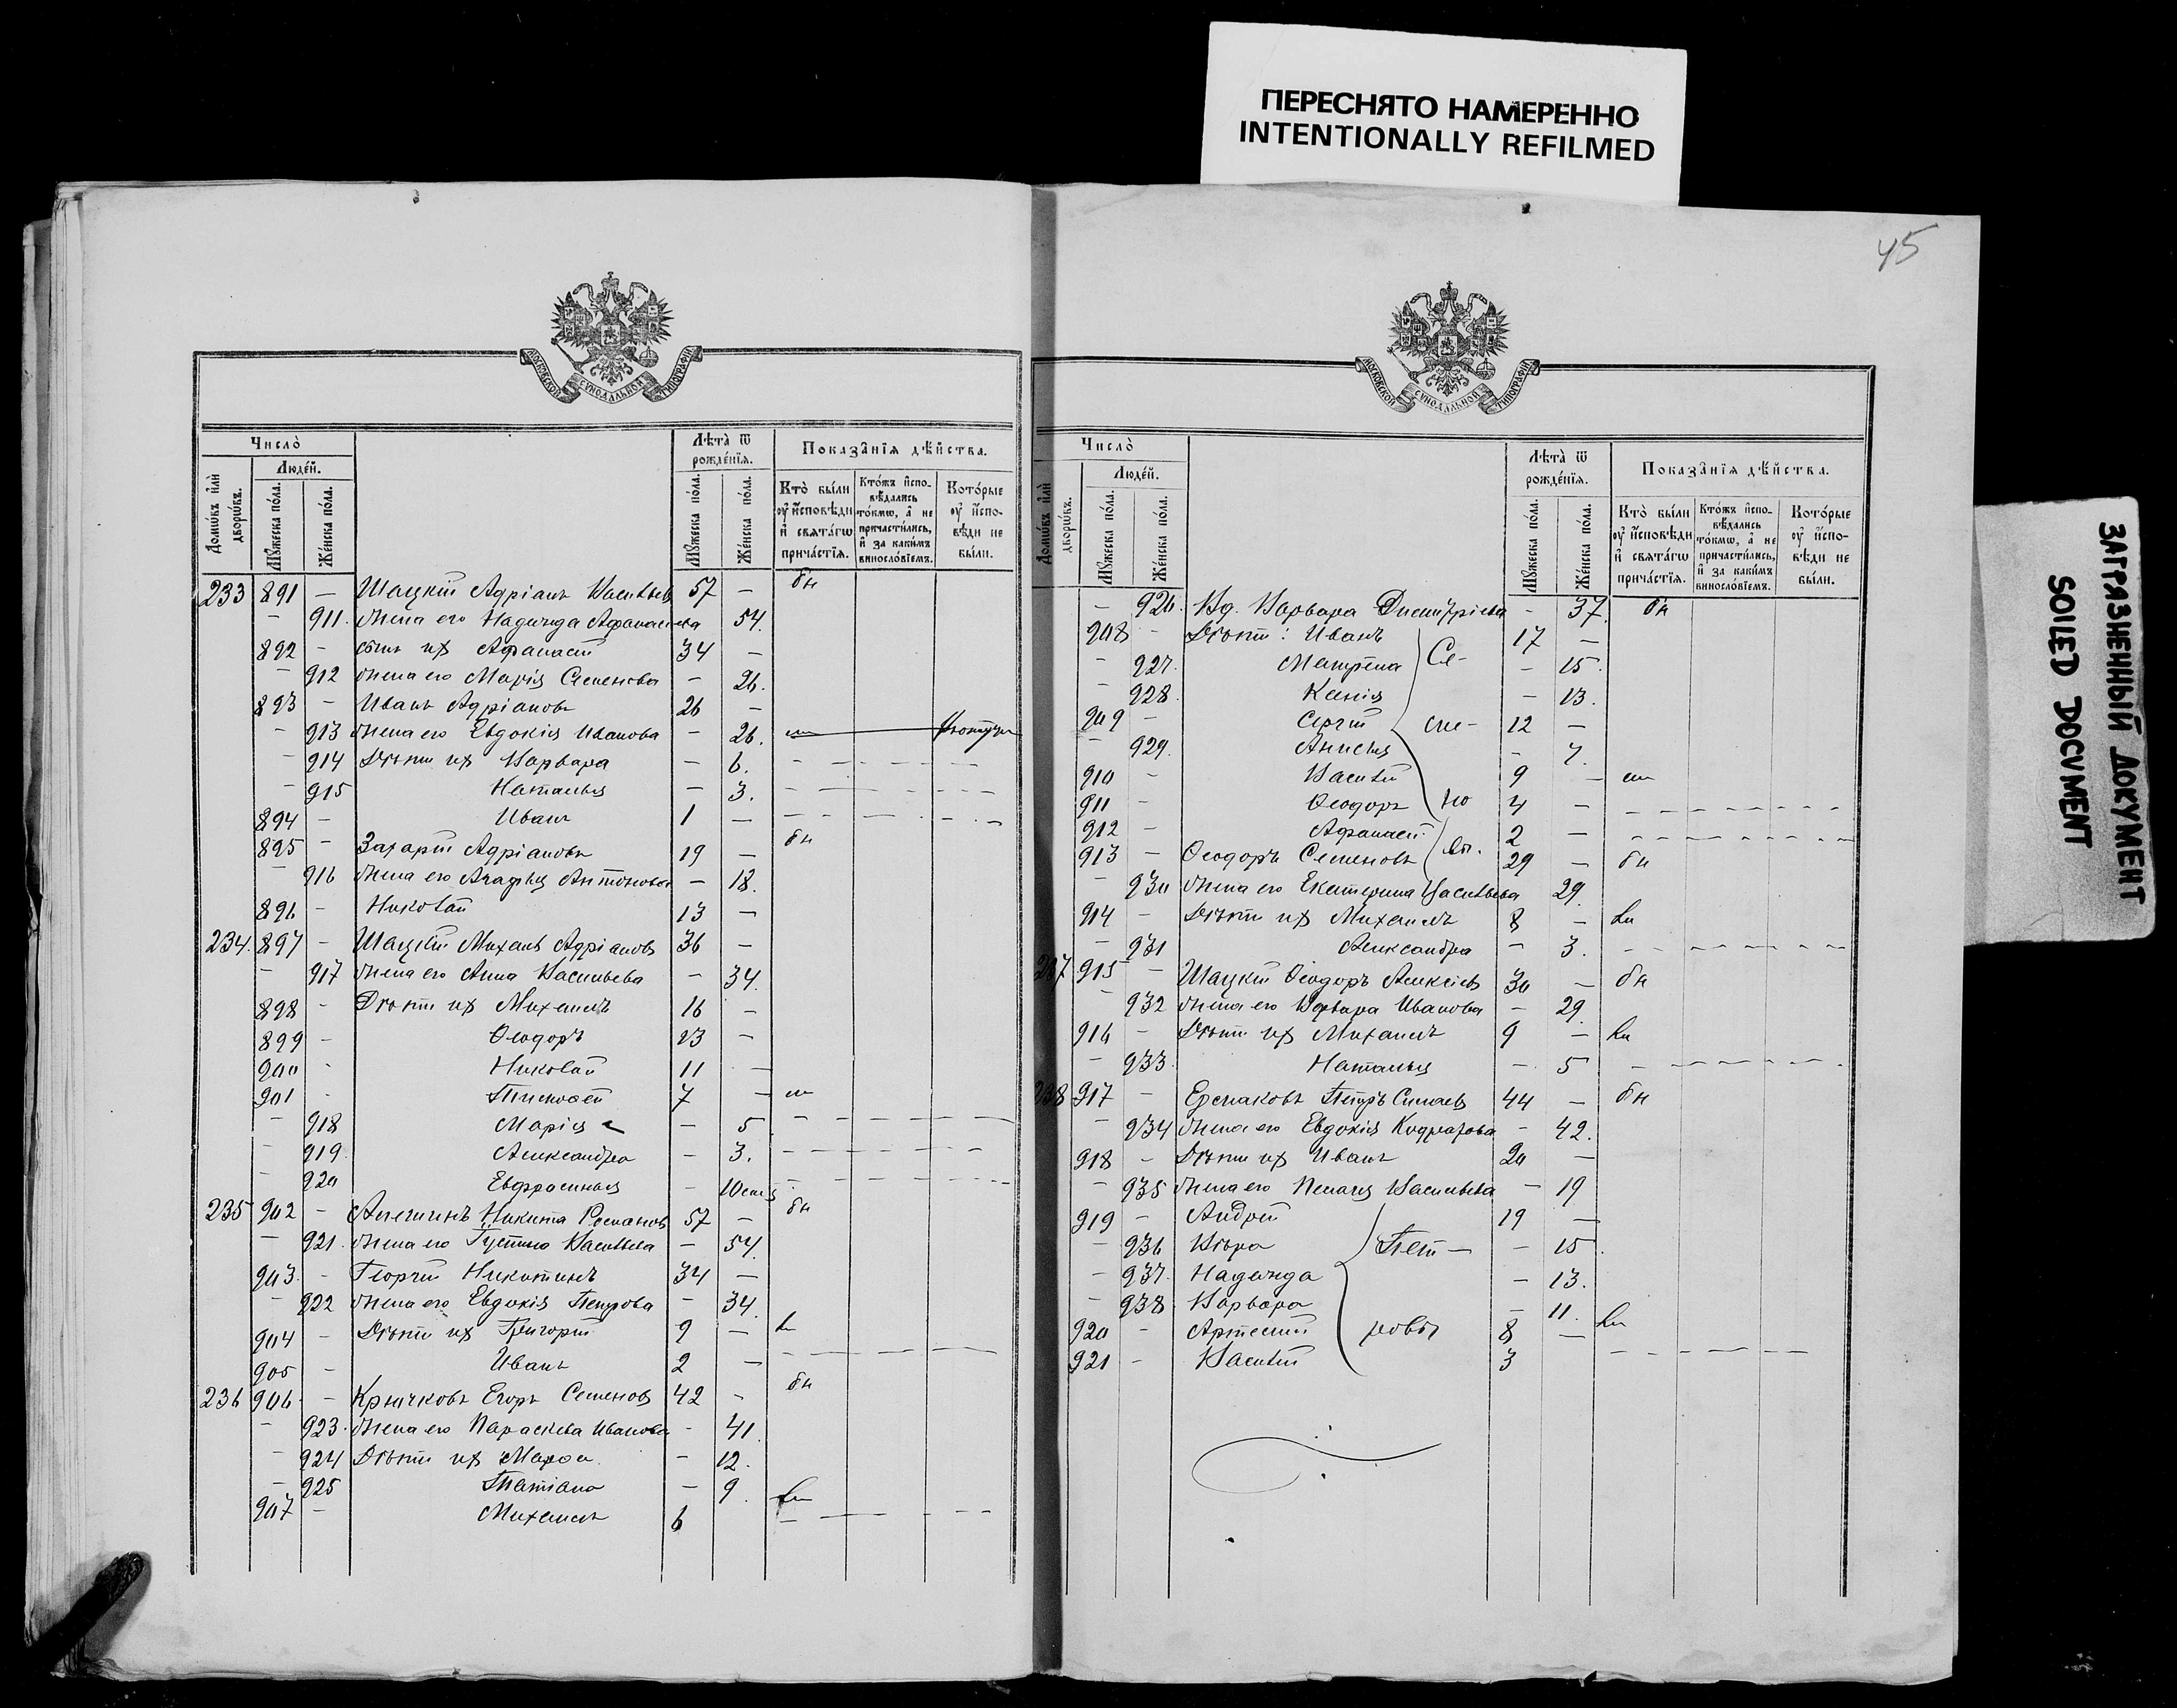 ПЕРЕСНЯТО НАМЕРЕННО
INTENTIONALLY REFILMED
ЗАГРЯЗНЕННЫЙ ДОКУМЕНТ
SOILED DOCUMENT
45
МОСКОВСКОЙ СѴНОДАЛЬНОЙ ТИПОГРАФІИ
Число̀
Людéй.
Домѡ́въ и҆лѝ дворѡ́въ.
Мꙋ́жеска пóла.
Жéнска пóла.
Лѣ̑та̀ ѿ рождéнїѧ.
Мꙋ́жеска пóла.
Жéнска пóла.
Показа̑нїѧ дѣ́йства.
Ктò бы́ли ᲂу҆ и҆́сповѣди и҆ свѧта́гѡ прича́стїѧ.
Кто́жъ и҆спо-вѣ́дались то́кмѡ, а҆ не причасти́лись, и҆ за каки́мъ винослóвїемъ.
Кото́рые ᲂу҆ и҆спо-вѣди не бы́ли.
233 891 — Шацкій Адріанъ Васильевъ 57 — бн
— 911. жена его Надежда Афанасьева 54.
892 — сынъ их Афанасій 34 —
— 912 жена его Марія Семенова — 26.
893 — Иванъ Адріановъ 26 —
— 913 жена его Евдокія Иванова — 26.
— 914 Дѣти их Варвара — 6.
— 915 Наталья — 3.
894 — Иванъ 1 —
895 — Захарій Адріановъ 19 — бн
— 916 жена его Агафья Антонова — 18.
896 — Николай 13 —
234. 897 — Шацкій Михаилъ Адріановъ 36 —
— 917 жена его Анна Васильева — 34.
898 — Дѣти их Михаилъ 16 —
899 — Ѳеодоръ 13 —
900 — Николай 11 —
901 — Тимоѳей 7 —
— 918 Марія — 5
— 919. Александра — 3.
— 920 Евфросинья — 10 мѣс
235 902 — Алешинъ Никита Романовъ 57 — бн
— 921. жена его Устинья Васильева — 54.
903. — Георгій Никитинъ 34 —
— 922 жена его Евдокія Петрова — 34.
904 — Дѣти их Григорій 9 —
905 — Иванъ 2 —
236 906. — Крючковъ Егоръ Семеновъ 42 — бн
— 923. жена его Параскева Иванова — 41.
— 924 Дѣти их Марѳа — 12.
— 925 Татіана — 9.
907 — Михаилъ 6
МОСКОВСКОЙ СѴНОДАЛЬНОЙ ТИПОГРАФІИ
Число̀
Людéй.
Домѡ́въ и҆лѝ дворѡ́въ.
Мꙋ́жеска пóла.
Жéнска пóла.
Лѣ̑та̀ ѿ рождéнїѧ.
Мꙋ́жеска пóла.
Жéнска пóла.
Показа̑нїѧ дѣ́йства.
Ктò бы́ли ᲂу҆ и҆́сповѣди и҆ свѧта́гѡ прича́стїѧ.
Кто́жъ и҆спо-вѣ́дались то́кмѡ, а҆ не причасти́лись, и҆ за каки́мъ винослóвїемъ.
Кото́рые ᲂу҆ и҆спо-вѣди не бы́ли.
— 926. Вд. Варвара Димитріева — 37. бн
908 — Дѣти: Иванъ 17 —
— 927. Матрена Се- — 15.
— 928. Ксенія — 13.
909 — Сергій ме- 12 —
— 929. Анисья — 7.
910 — Василій 9 —
911 — Ѳеодоръ но 4 —
912 — Афанасій 2 —
913 — Ѳеодоръ Семеновъ вы. 29 — бн
— 930 жена его Екатерина Васильева 29.
914 — Дѣти их Михаилъ 8 —
— 931 Александра — 3.
237 915 — Шацкій Ѳеодоръ Алексѣевъ 30 — бн
— 932 жена его Варвара Иванова — 29.
916 — Дѣти их Михаилъ 9 —
— 933. Наталья — 5
238 917 — Ермаковъ Петръ 44 — бн
— 934 жена его Евдокія — 42.
918 — Дѣти их Иванъ 20 —
— 935 жена его Пелагея Васильева — 19
919 — Андрей 19 —
— 936 Вѣра Пет — — 15.
— 937. Надежда — 13.
— 938. Варвара — 11.
920 — Артемій ровы 8 —
921 — Василій 3